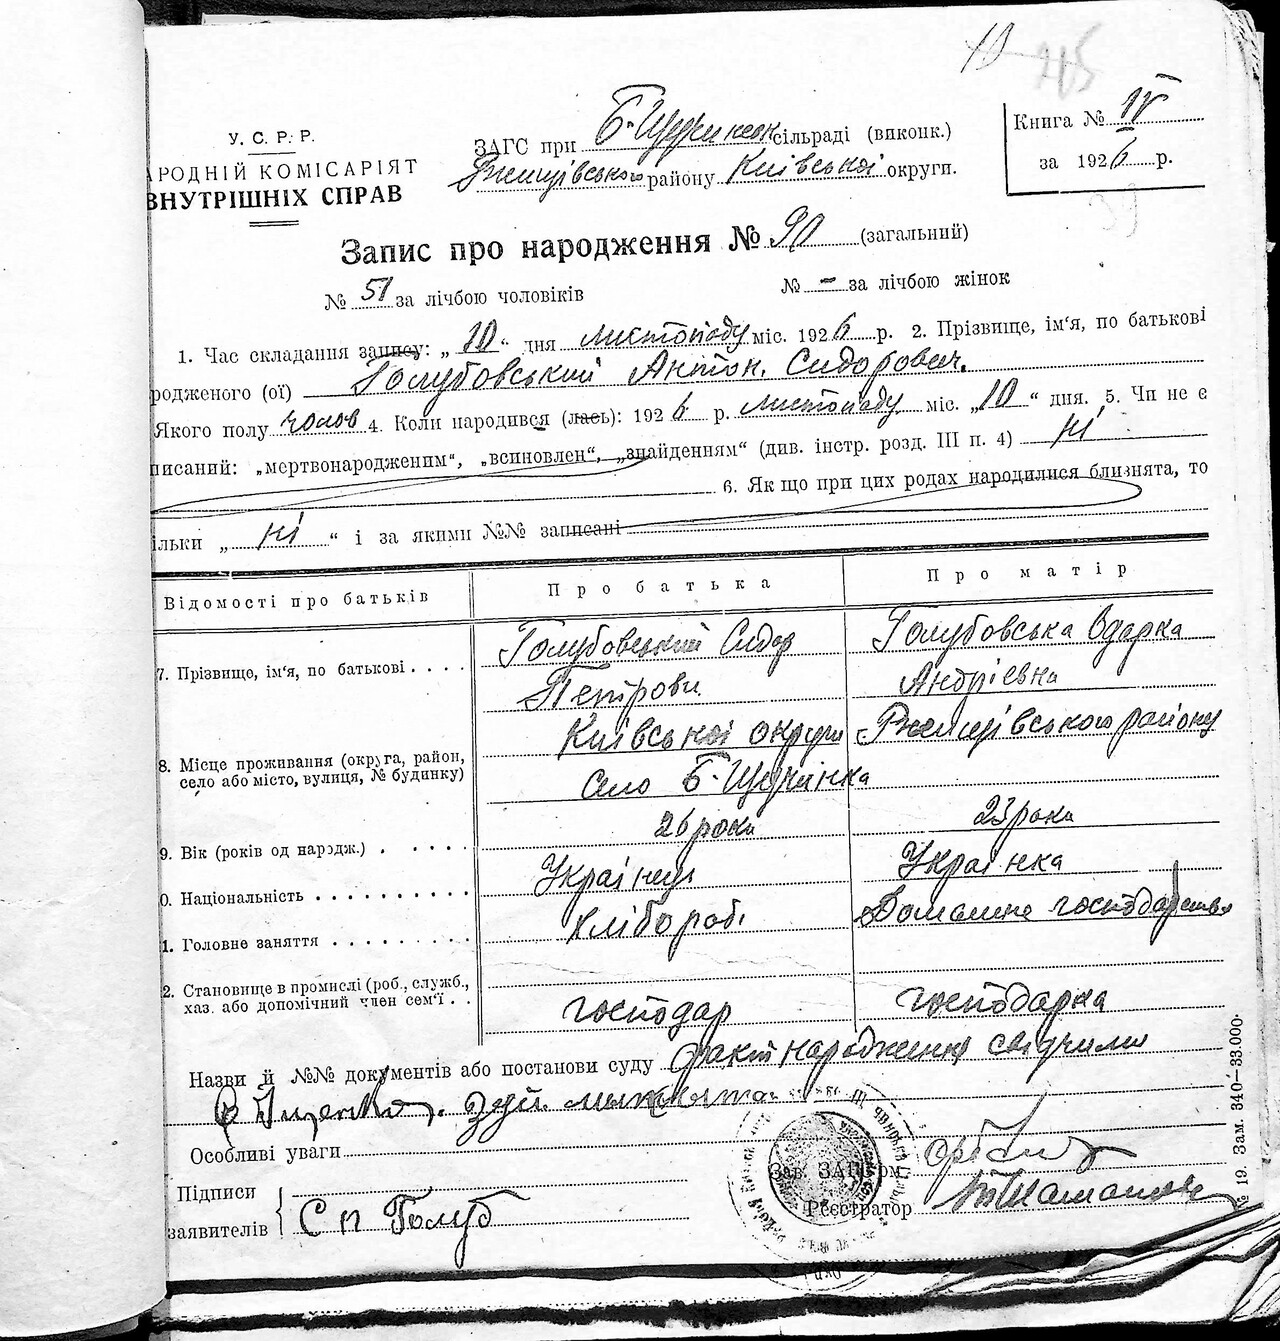 У. С. Р. Р.
АРОДНІЙ КОМІСАРІЯТ
ВНУТРІШНІХ СПРАВ
ЗАГС при Б-Щучинськ сільраді (виконк.)
Ржищівського району Київської округи.
Книга № IV
за 1926 р.
Запис про народження № 90 (загальний)
№ 51 за лічбою чоловіків № - за лічбою жінок
1. Час складання запису: „ 10 “ дня листопаду міс. 1926 р. 2. Прізвище, ім'я, по батькові
родженого (ої) Голубовський Антон. Сидорович.
Якого полу чолов 4. Коли народився (лась): 1926 р. листопаду міс. „ 10 “ дня. 5. Чи не є
писаний: „мертвонародженим“, „всиновлен“, „знайденням“ (див. інстр. розд. III п. 4) ні
6. Якщо при цих родах народилися близнята, то
ільки „ ні “ і за якими №№ записані
Відомості про батьків Про батька Про матір
7. Прізвище, ім'я, по батькові . . . . Голубовський Сидор Петрови Голубовська Одарка Андрієвна
8. Місце проживання (округа, район, село або місто, вулиця, № будинку) Київської округи Ржищівського району
село Б-Щучинка
9. Вік (років од народж.) . . . . . 26 роки 23 роки
0. Національність . . . . . . . . . . Українець Українка
1. Головне заняття . . . . . . . . . Хлібороб. Домашнє господарство
2. Становище в промислі (роб., служб., хаз. або допомічний член сем'ї . . господар господарка
Назви й №№ документів або постанови суду факт народження свідчили
Особливі уваги
Підписи
заявителів С П Голуб
Зав. ЗАГС'ом
Реєстратор
№ 19. Зам. 340—33.000.